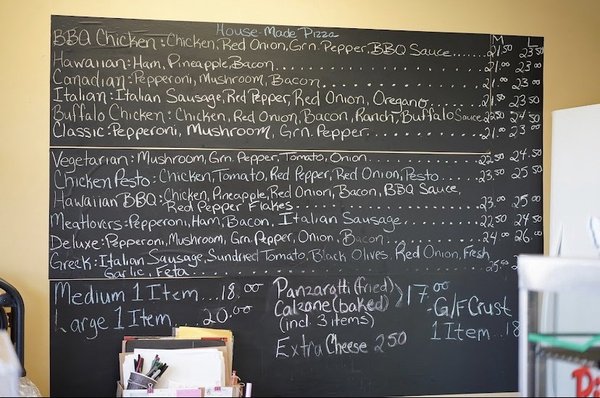 House-Made Pizza
M L
BBQ Chicken: Chicken, Red Onion, Grn. Pepper, BBQ Sauce 21.50 23.50
Hawaiian: Ham, Pineapple, Bacon 21.00 23.00
Canadian: Pepperoni, Mushroom, Bacon 21.00 23.00
Italian: Italian Sausage, Red Pepper, Red Onion, Oregano 21.50 23.50
Buffalo Chicken: Chicken, Red Onion, Bacon, Ranch, Buffalo Sauce 24.50
Classic: Pepperoni, Mushroom, Grn. Pepper 21.00 23.00
Vegetarian: Mushroom, Grn. Pepper, Tomato, Onion 22.50 24.50
Chicken Pesto: Chicken, Tomato, Red Pepper, Red Onion, Pesto 23.50 25.50
Hawaiian BBQ: Chicken, Pineapple, Red Onion, Bacon, BBQ Sauce,
Red Pepper Flakes 23.00 25.00
Meatlovers: Pepperoni, Ham, Bacon, Italian Sausage 22.50 24.50
Deluxe: Pepperoni, Mushroom, Grn. Pepper, Onion, Bacon 24.00 26.00
Greek: Italian Sausage, Sundried Tomato, Black Olives, Red Onion, Fresh
Garlic, Feta
Medium 1 Item...18.00
Large 1 Item...20.00
Panzarotti (fried)
Calzone (baked) 17.00
(incl 3 items)
Extra Cheese 2.50
-G/F Crust
1 Item..18